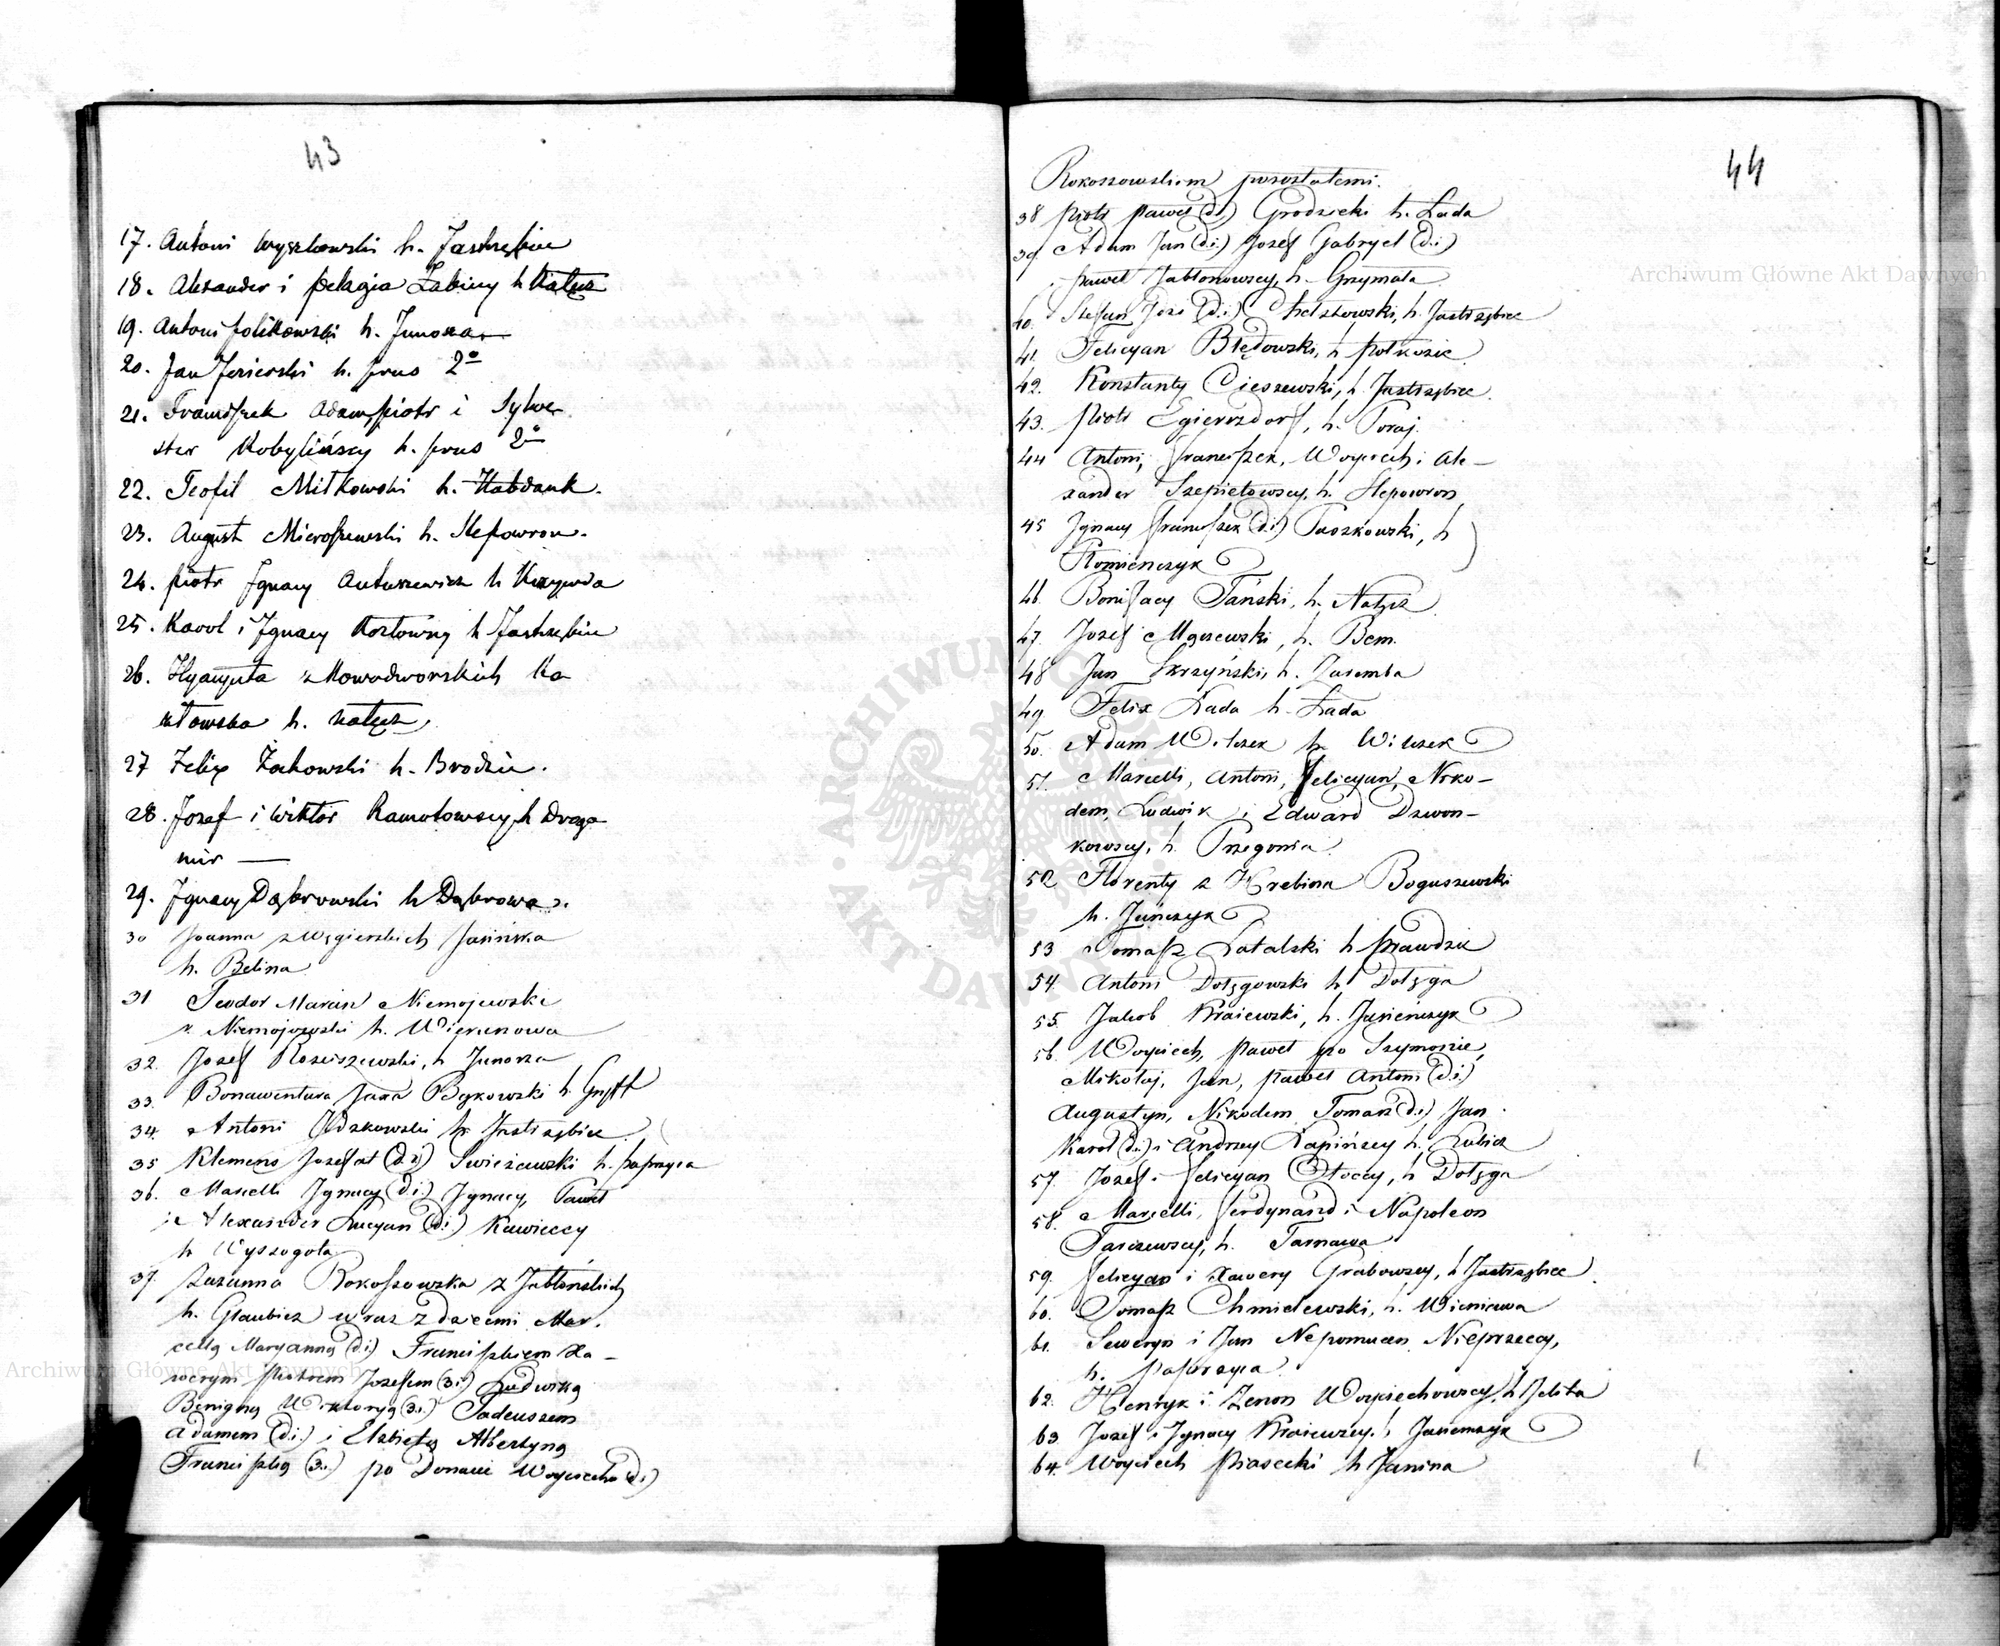 43
17. Antoni Wyszkowski h. Jastrzębiec
18. Alexander i Pelagia Żabiccy h Nałęcz
19. Antoni Polikowski h. Junosza
20. Jan Jezierski h. Prus 2o
21. Franciszek Adam Piotr i Sylwe-
ster Kobylińscy h. Prus 2o
22. Teofil Miłkowski h. Habdank.
23. August Mieroszewski h. Slepowron.
24. Piotr Ignacy Antuszewicz h
25. Karol i Ignacy Kozłowscy h Jastrzębiec
26. Hyacynta z Nowodworskich Ko
złowska h. Nałęcz
27 Felix Żochowski h. Brodzic.
28. Jozef i Wiktor Ramotowscy h Drogo
mir
29. Ignacy Dąbrowski h Dąbrowa
30 Joanna z Węgierskich Jasińska
h. Belina
31 Teodor Maran Niemojewski
v. Niemojowski h. Wieruszowa
32. Jozef Rosciszewski, h Junosza
33. Bonawentura Jaxa Bykowski h. Gryff
34. Antoni Adzkowski h. Jastrzębiec
35 Klemens Jozefat (d.i) Swieżawski h. Paprzyca
36. Marcelli Ignacy (d.i.) Ignacy, Paweł
i Alexander Lucyan (d.i.) Kawieccy
h Wyszogota
37. Zuzanna Rokoszowska z Jabłońskich
h. Glaubicz wraz z dziećmi Mar.
cellą Maryanną (d.i) Franciszkiem Xa-
werym Piotrem Jozefem (3.i.) Ludwiką
Benigną Wiktoryą (3.i.) Tadeuszem
Adamem (d.i.) i Elzbietą Albertyną
Franciszką (3.i.) po Donacie Woyciechu (d.i)
44
Rokoszowskim pozostałemi.
38 Piotr Paweł (d.i) Grodzicki h. Łada
39. Adam Jan (d.i.) Jozef Gabryel (d.i)
Paweł Jabłonowscy, h. Grzymała
40. Stefan Jozef (d.i.) Chełstowski, h. Jastrzębiec
41. Felicyan Błędowski, h Połkozic
42. Konstanty Cieszewski, h. Jastrzębiec.
43. Piotr Egierszdorf, h. Poraj.
44 Antoni, Franciszek, Woyciech i Ale-
xander Szepietowscy, h. Slepowron
45 Ignacy Franciszek (d.i) Paszkowski, h
Płomieńczyk
46. Bonifacy Tański, h. Nałęcz
47. Jozef Mężewski, h. Bem.
48 Jan Skrzyński, h. Zaremba
49 Felix Łada h. Łada
50. Adam Wilczek h Wilczek
51. Marcelli, Antoni, Felicyan, Niko-
dem, Ludwik i Edward Dzwon-
kowscy, h. Przegonia
52 Florenty z Hrebina Boguszewski
h. Juńczyk
53 Tomasz Latalski h Prawdzic
54. Antoni Dołęgowski h Dołęga
55. Jakob Kraiewski, h. Jasieńczyk
56. Woyciech, Paweł po Szymonie,
Mikołaj, Jan, Paweł Antoni (d.i.)
Augustyn, Nikodem Tomasz (d.i) Jan
Karol (d.i.) i Andrzey Łapińscy h. Lubicz
57. Jozef i Felicyan Płoccy, h Dołęga
58. Marcelli, Ferdynand i Napoleon
Tarczewscy, h. Tarnawa
59. Felicyan i Xawery Grabowscy, h Jastrzębiec
60. Tomasz Chmielewski, h. Wieniawa
61. Seweryn i Jan Nepomucen Nieprzeccy,
h. Paprzyca
62. Henryk i Zenon Woyciechowscy h Jelita
63 Jozef i Ignacy Kraiewscy h Jasieńczyk
64. Woyciech Piasecki h Janina
Archiwum Główne Akt Dawnych
Archiwum Główne Akt Dawnych
ARCHIWUM GŁÓWNE AKT DAWNYCH